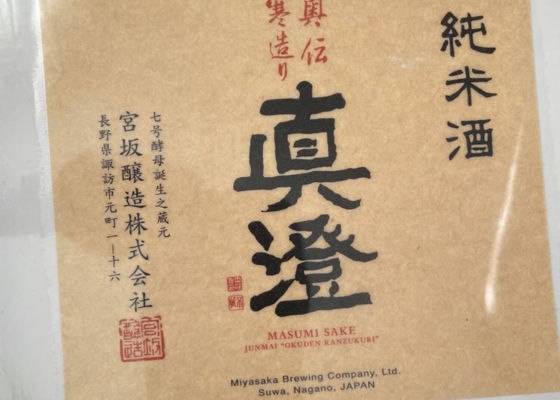 純米酒
奥伝
寒造り
真澄
七号酵母誕生之蔵元
宮坂醸造株式会社
長野県諏訪市元町一ー十六
MASUMI SAKE
JUNMAI "OKUDEN KANZUKURI"
Miyasaka Brewing Company, Ltd.
Suwa, Nagano, JAPAN